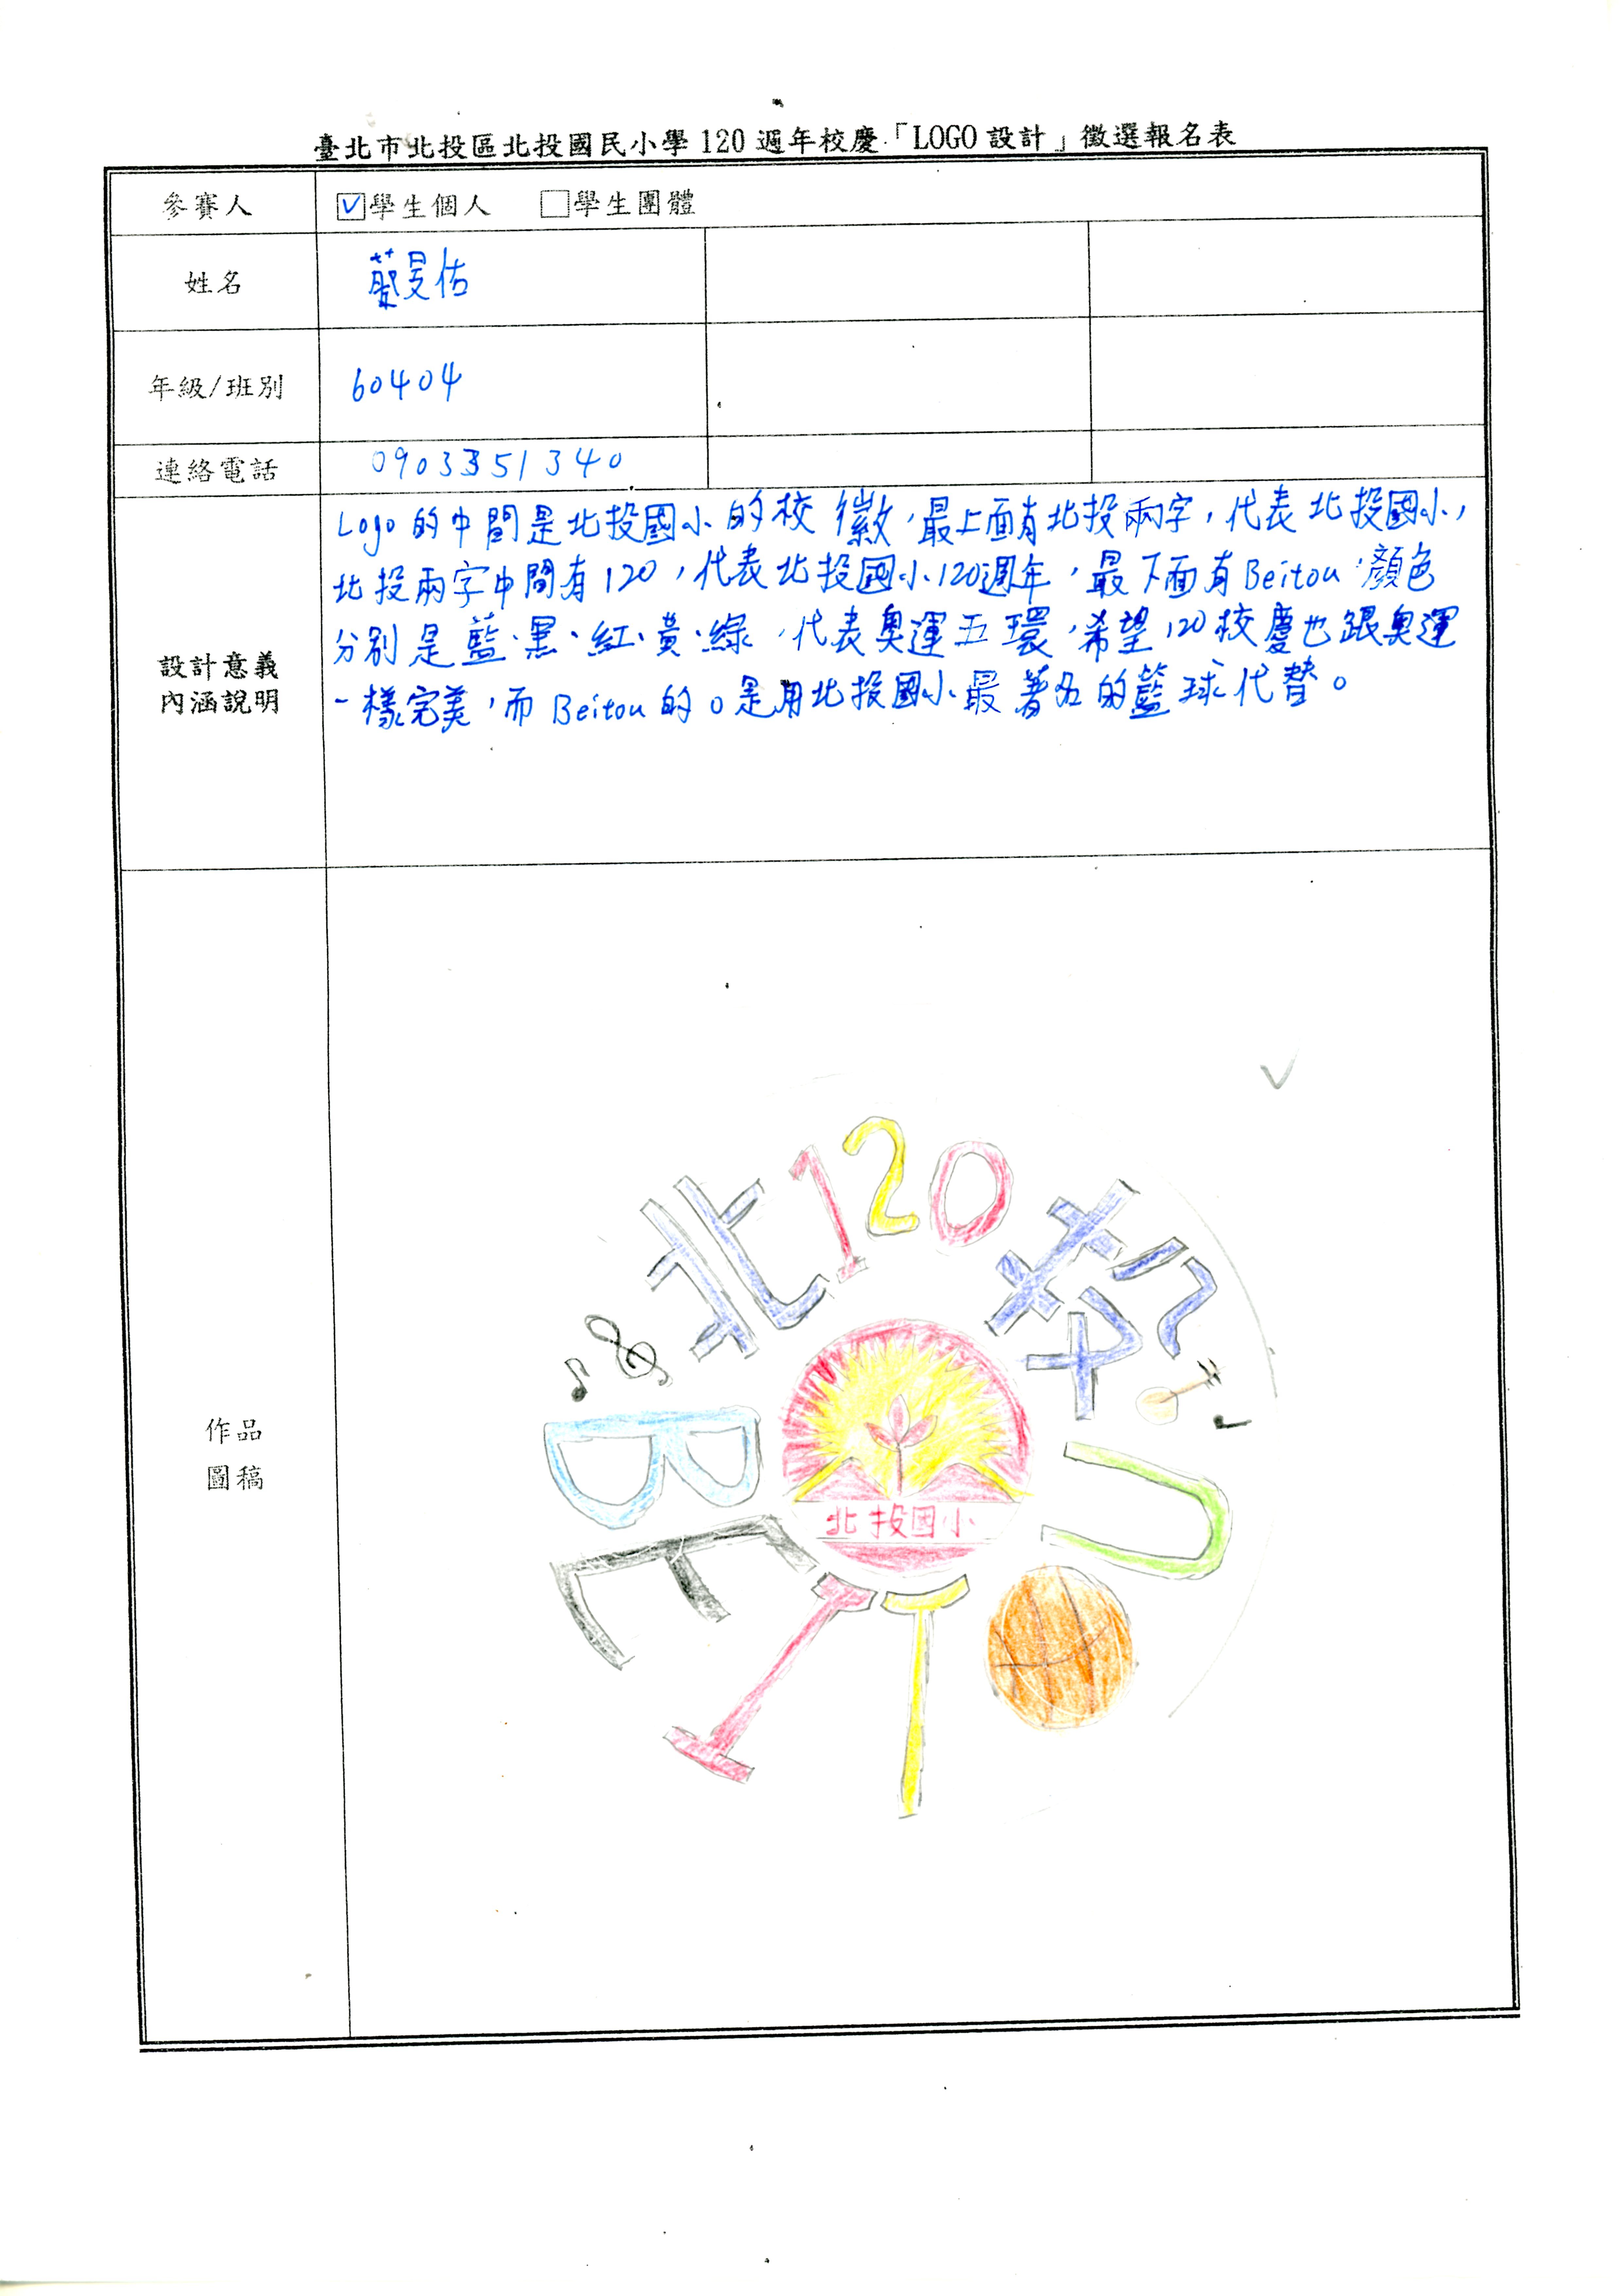 臺北市北投區北投國民小學120週年校慶「LOGO設計」徵選報名表
參賽人 ☑學生個人 □學生團體
姓名 蔡旻佑
年級/班別 60404
連絡電話 0903351340
設計意義
內涵說明
Logo的中間是北投國小的校徽,最上面有北投兩字,代表北投國小,
北投兩字中間有120,代表北投國小120週年,最下面有Beitou,顏色
分別是藍、黑、紅、黃、綠,代表奧運五環,希望120校慶也跟奧運
一樣完美,而Beitou的o是用北投國小最著名的籃球代替。
作品
圖稿
北120投
北投國小
BEIT U